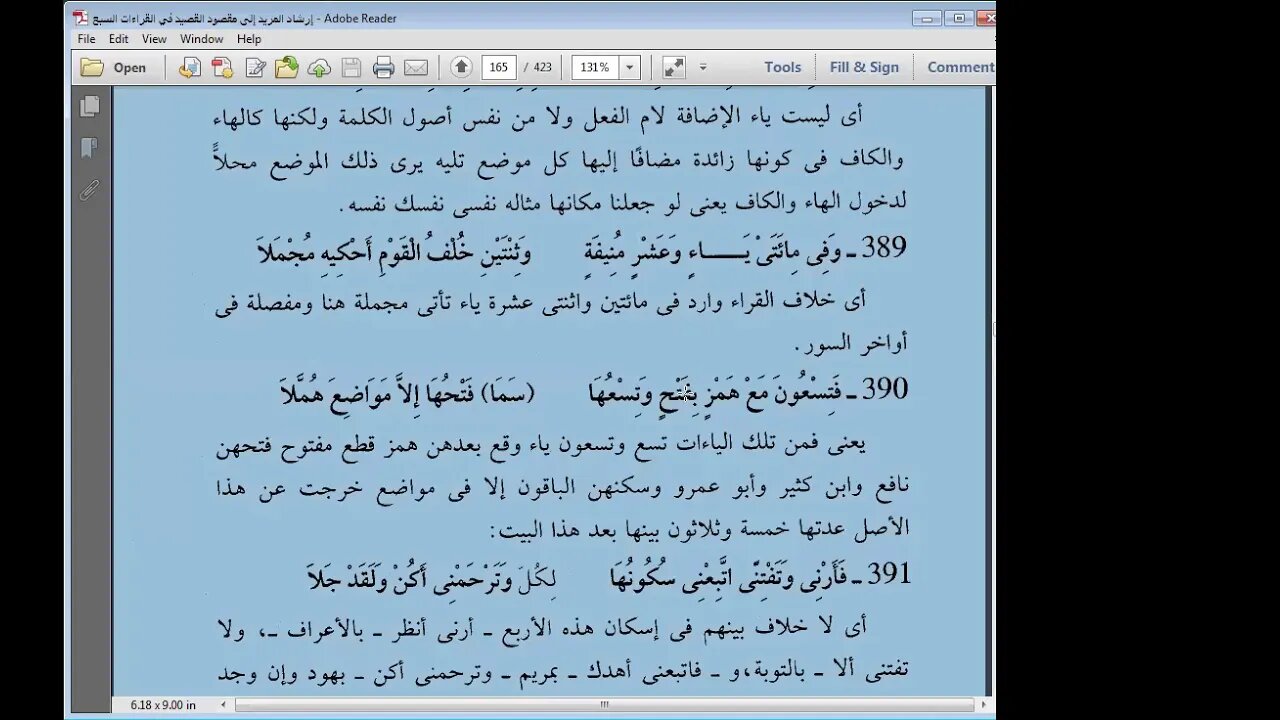 إرشاد المريد إلى مقصود القصيد في القراءات السبع - Adobe Reader
File Edit View Window Help
Open 165 / 423 131% Tools Fill & Sign Comment
أى ليست ياء الإضافة لام الفعل ولا من نفس أصول الكلمة ولكنها كالهاء
والكاف فى كونها زائدة مضافًا إليها كل موضع تليه يرى ذلك الموضع محلاًّ
لدخول الهاء والكاف يعنى لو جعلنا مكانها مثاله نفسى نفسك نفسه.
389 ـ وَفِى مِائَتَىْ يَـــــاءٍ وَعَشْرٍ مُنِيفَةٍ وَثِنْتَيْنِ خُلْفُ الْقَوْمِ أَحْكِيهِ مُجْمَلاَ
أى خلاف القراء وارد فى مائتين واثنتى عشرة ياء تأتى مجملة هنا ومفصلة فى
أواخر السور.
390 ـ فَتِسْعُونَ مَعْ هَمْزٍ بِفَتْحٍ وَتِسْعُهَا (سَمَا) فَتْحُهَا إِلاَّ مَوَاضِعَ هُمَّلاَ
يعنى فمن تلك الياءات تسع وتسعون ياء وقع بعدهن همز قطع مفتوح فتحهن
نافع وابن كثير وأبو عمرو وسكنهن الباقون إلا فى مواضع خرجت عن هذا
الأصل عدتها خمسة وثلاثون بينها بعد هذا البيت:
391 ـ فَأَرْنِى وَتَفْتِنِّى اتَّبِعْنِى سُكُونُهَا لِكُلَ وَتَرْحَمْنِى أَكُنْ وَلَقَدْ جَلاَ
أى لا خلاف بينهم فى إسكان هذه الأربع ـ أرنى أنظر ـ بالأعراف ـ، ولا
تفتنى ألا ـ بالتوبة،و ـ فاتبعنى أهدك ـ بمريم ـ وترحمنى أكن ـ بهود وإن وجد
6.18 x 9.00 in